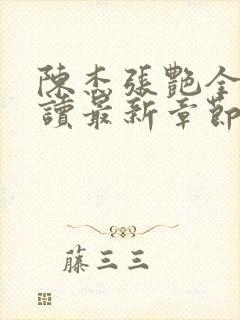 陳杰張艷全
讀最新章節
藤三三